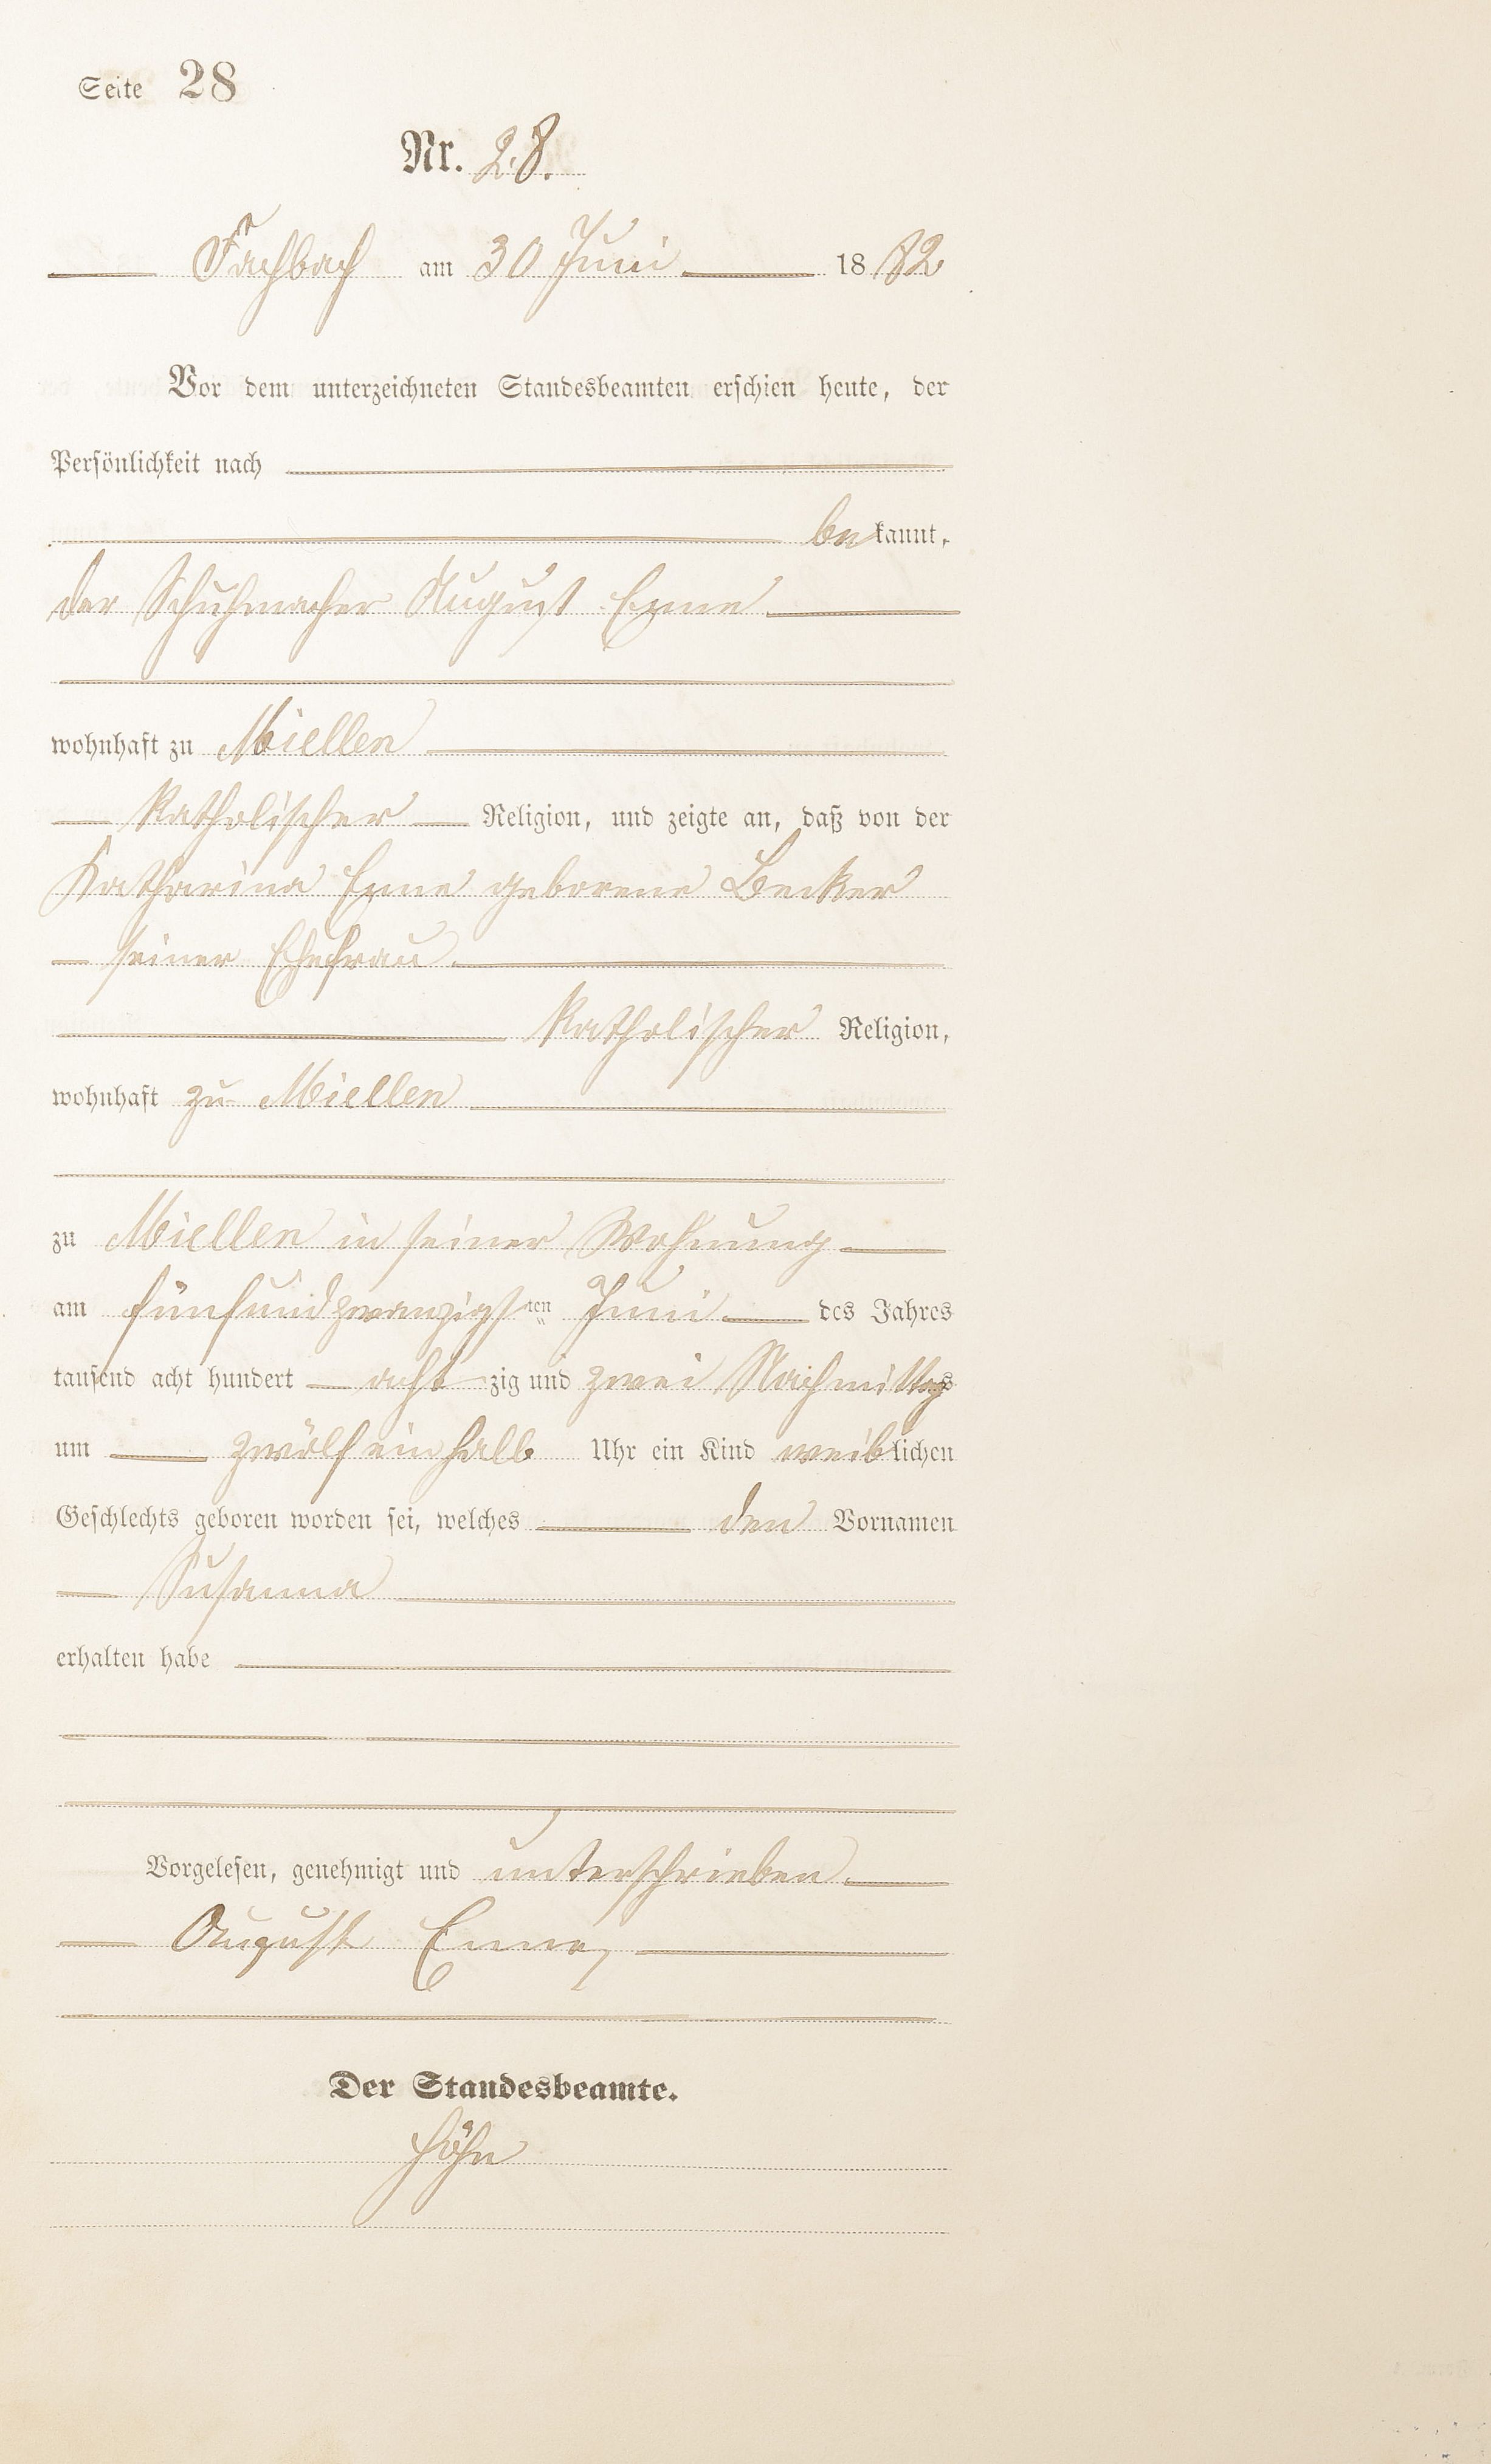 Seite 28
Nr. 28.
Fachbach am 30 Juni 1882
Vor dem unterzeichneten Standesbeamten erschien heute, der
Persönlichkeit nach
bekannt,
der Schuhmacher August
wohnhaft zu Miellen
Katholischer Religion, und zeigte an, daß von der
Katharina geborene Becker
seiner Ehefrau
Katholischer Religion,
wohnhaft zu Miellen
zu Miellen in seiner Wohnung
am fünfundzwanzigsten Juni des Jahres
tausend acht hundert achtzig und zwei Nachmittags
um zwölf ein halb Uhr ein Kind weiblichen
Geschlechts geboren worden sei, welches den Vornamen
Susanna
erhalten habe
Vorgelesen, genehmigt und unterschrieben
August
Der Standesbeamte.
Höhn